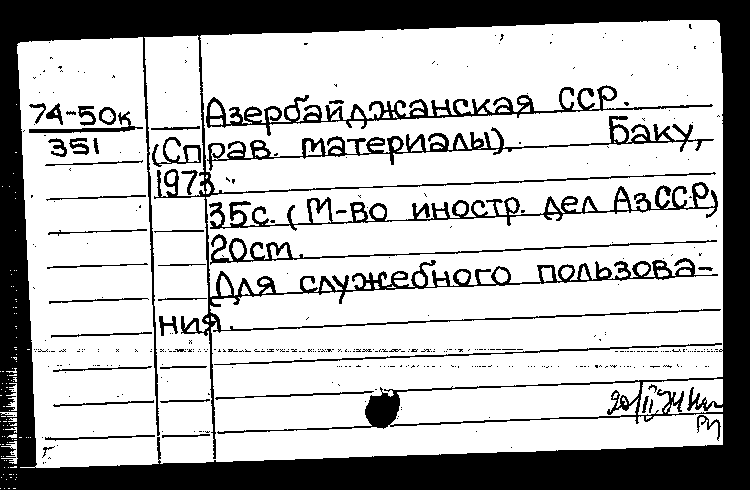 74-50к
351
Азербайджанская ССР.
(Справ. материалы). Баку,
1973.
35с. (М-во иностр. дел АзССР)
20cm.
Для служебного пользова-
ния.
20/II 74